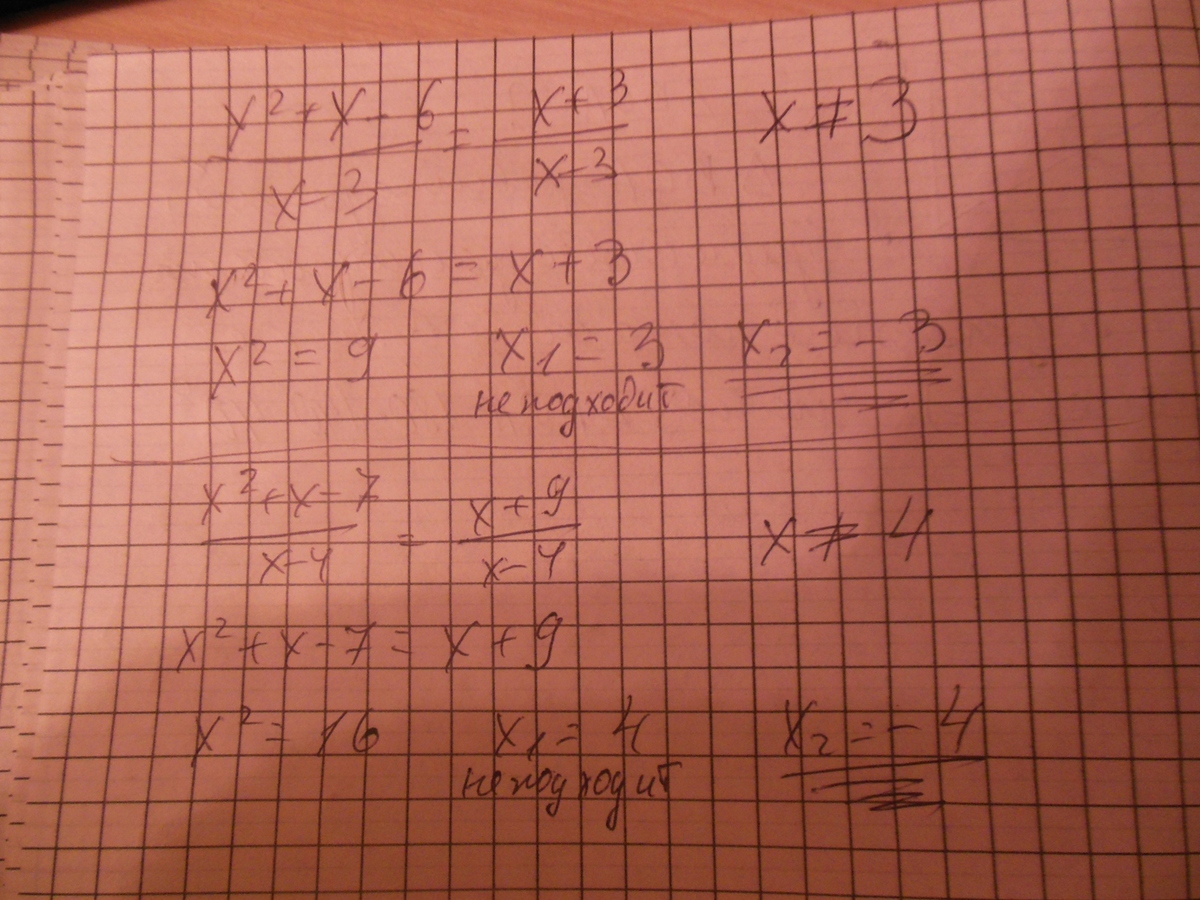 x² + x - 6 / x - 3 = x + 3 / x - 3   x ≠ 3
x² + x - 6 = x + 3
x² = 9   x₁ = 3   x₂ = - 3
не подходит
x² + x - 7 / x - 4 = x + 9 / x - 4   x ≠ 4
x² + x - 7 = x + 9
x² = 16   x₁ = 4   x₂ = - 4
не подходит